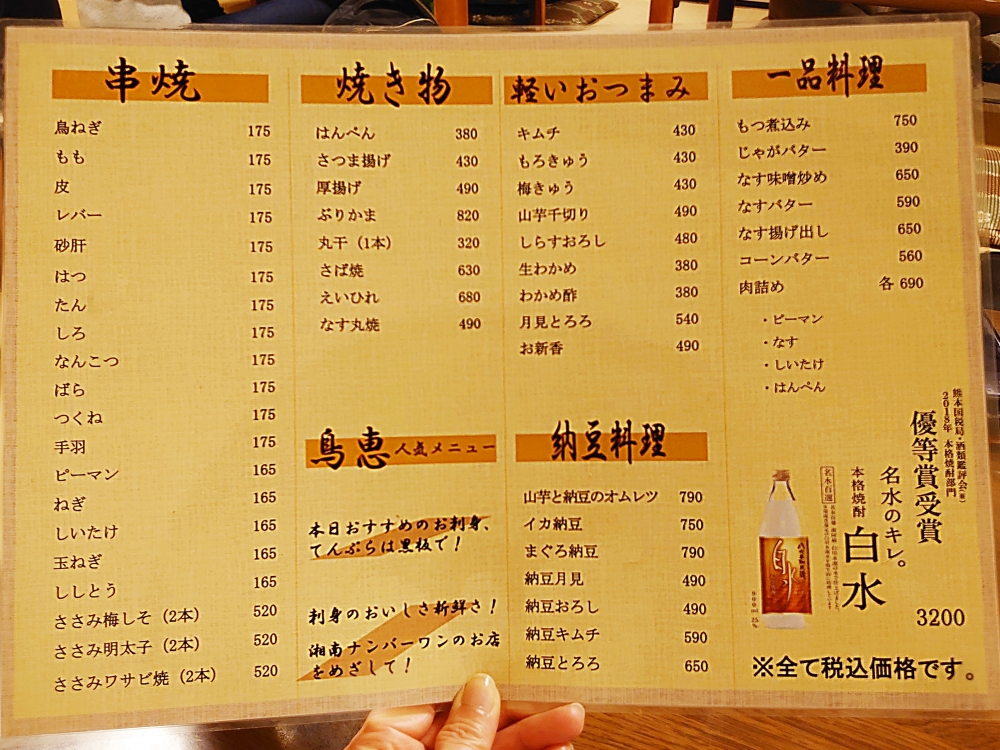 串焼
鳥ねぎ 175
もも 175
皮 175
レバー 175
砂肝 175
はつ 175
たん 175
しろ 175
なんこつ 175
ばら 175
つくね 175
手羽 175
ピーマン 165
ねぎ 165
しいたけ 165
玉ねぎ 165
ししとう 165
ささみ梅しそ（2本） 520
ささみ明太子（2本） 520
ささみワサビ焼（2本） 520
焼き物
はんぺん 380
さつま揚げ 430
厚揚げ 490
ぶりかま 820
丸干（1本） 320
さば焼 630
えいひれ 680
なす丸焼 490
鳥恵 人気メニュー
本日おすすめのお刺身、
てんぷらは黒板で！
刺身のおいしさ新鮮さ！
湘南ナンバーワンのお店
をめざして！
軽いおつまみ
キムチ 430
もろきゅう 430
梅きゅう 430
山芋千切り 490
しらすおろし 480
生わかめ 380
わかめ酢 380
月見とろろ 540
お新香 490
納豆料理
山芋と納豆のオムレツ 790
イカ納豆 750
まぐろ納豆 790
納豆月見 490
納豆おろし 490
納豆キムチ 590
納豆とろろ 650
一品料理
もつ煮込み 750
じゃがバター 390
なす味噌炒め 650
なすバター 590
なす揚げ出し 650
コーンバター 560
肉詰め 各 690
・ピーマン
・なす
・しいたけ
・はんぺん
熊本国税局・酒類鑑評会
2018年 本格焼酎部門
優等賞受賞
名水のキレ。
本格焼酎
白水
名水百選
白水
900ml 25%
3200
※全て税込価格です。